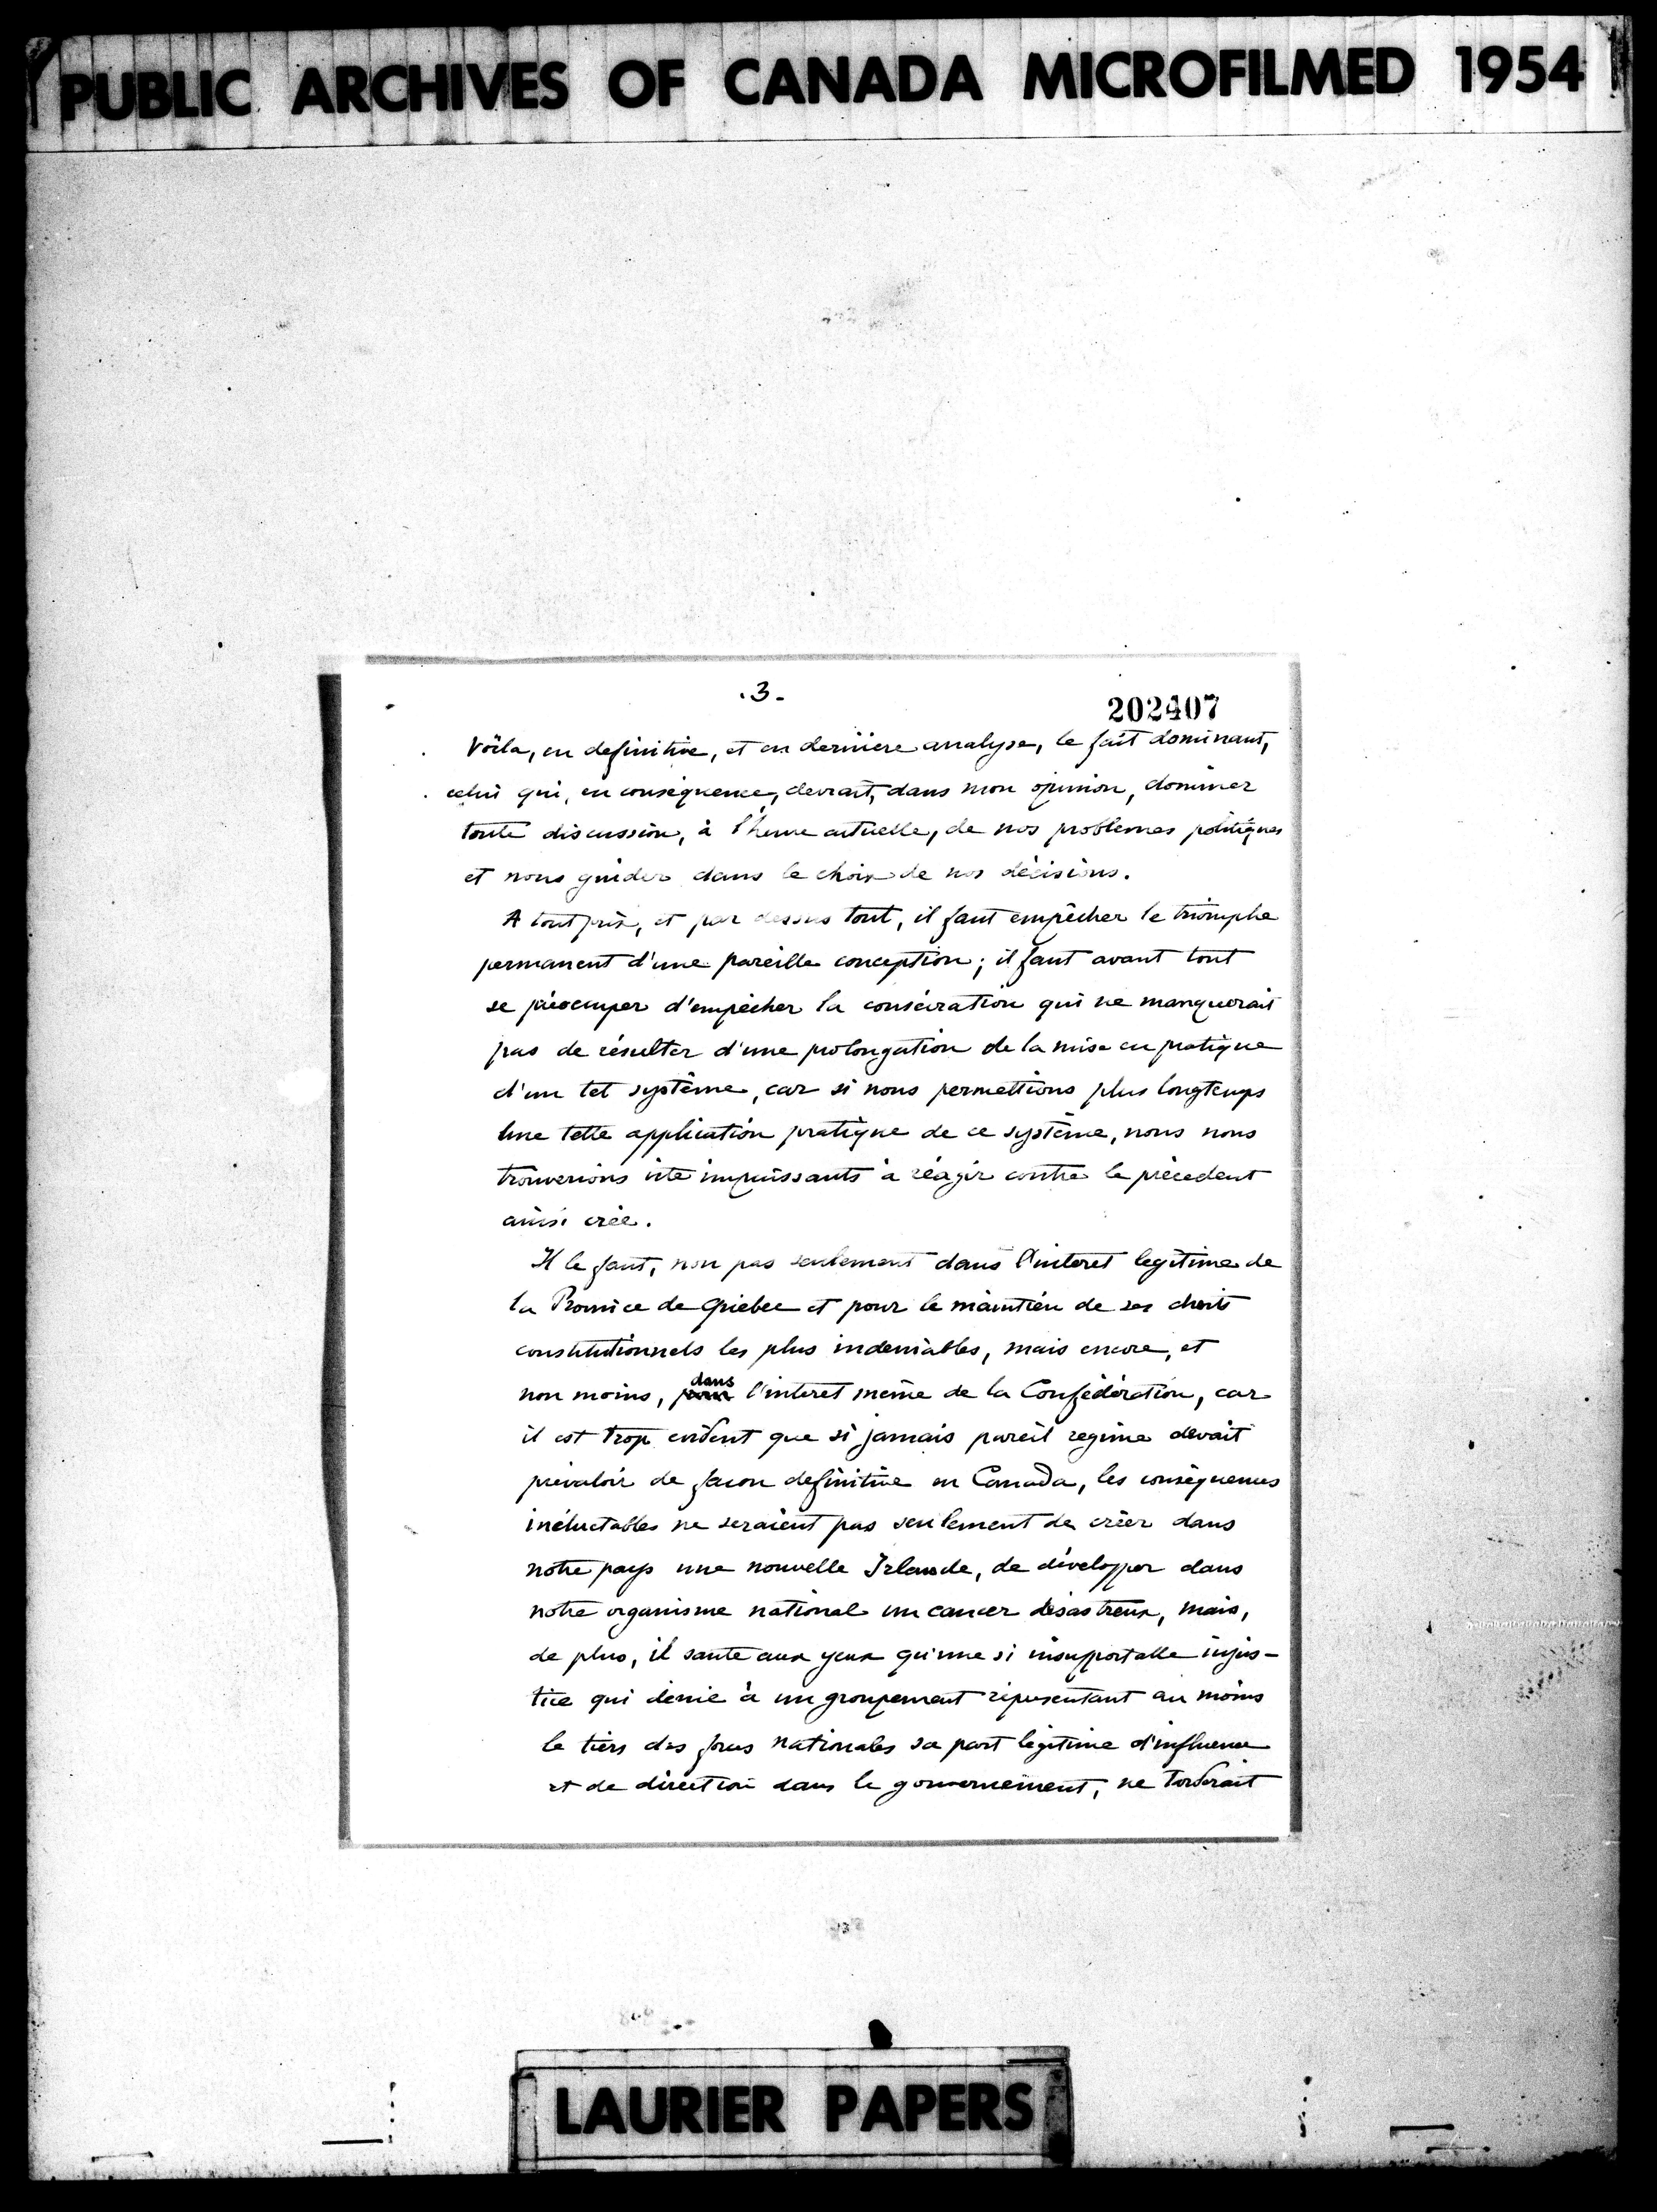 PUBLIC ARCHIVES OF CANADA MICROFILMED 1954
.3-
202407
Voila, en definitive, et en derniere analyse, le fait dominant,
celui qui, en conséquence, devrait, dans mon opinion, dominer
toute discussion, à l'heure actuelle, de nos problemes politiques
et nous guider dans le choix de nos décisions.
A tout prix, et par dessus tout, il faut empêcher le triomphe
permanent d'une pareille conception; il faut avant tout
se préoccuper d'empêcher la consécration qui ne manquerait
pas de résulter d'une prolongation de la mise en pratique
d'un tel système, car si nous permettions plus longtemps
une telle application pratique de ce système, nous nous
trouverions vite impuissants à réagir contre le précedent
ainsi créé.
Il le faut, non pas seulement dans l'interet legitime de
la Province de Quebec et pour le maintien de ses droits
constitutionnels les plus indeniables, mais encore, et
non moins, dans l'interet même de la Confédération, car
il est trop evident que si jamais pareil regime devait
prévaloir de facon definitive en Canada, les conséquences
inéluctables ne seraient pas seulement de créer dans
notre pays une nouvelle Irlande, de développer dans
notre organisme national un cancer désastreux, mais,
de plus, il saute aux yeux qu'une si insupportable injus-
tice qui dénie à un groupement répresentant au moins
le tiers des forces nationales sa part légitime d'influence
et de direction dans le gouvernement, ne tarderait
LAURIER PAPERS